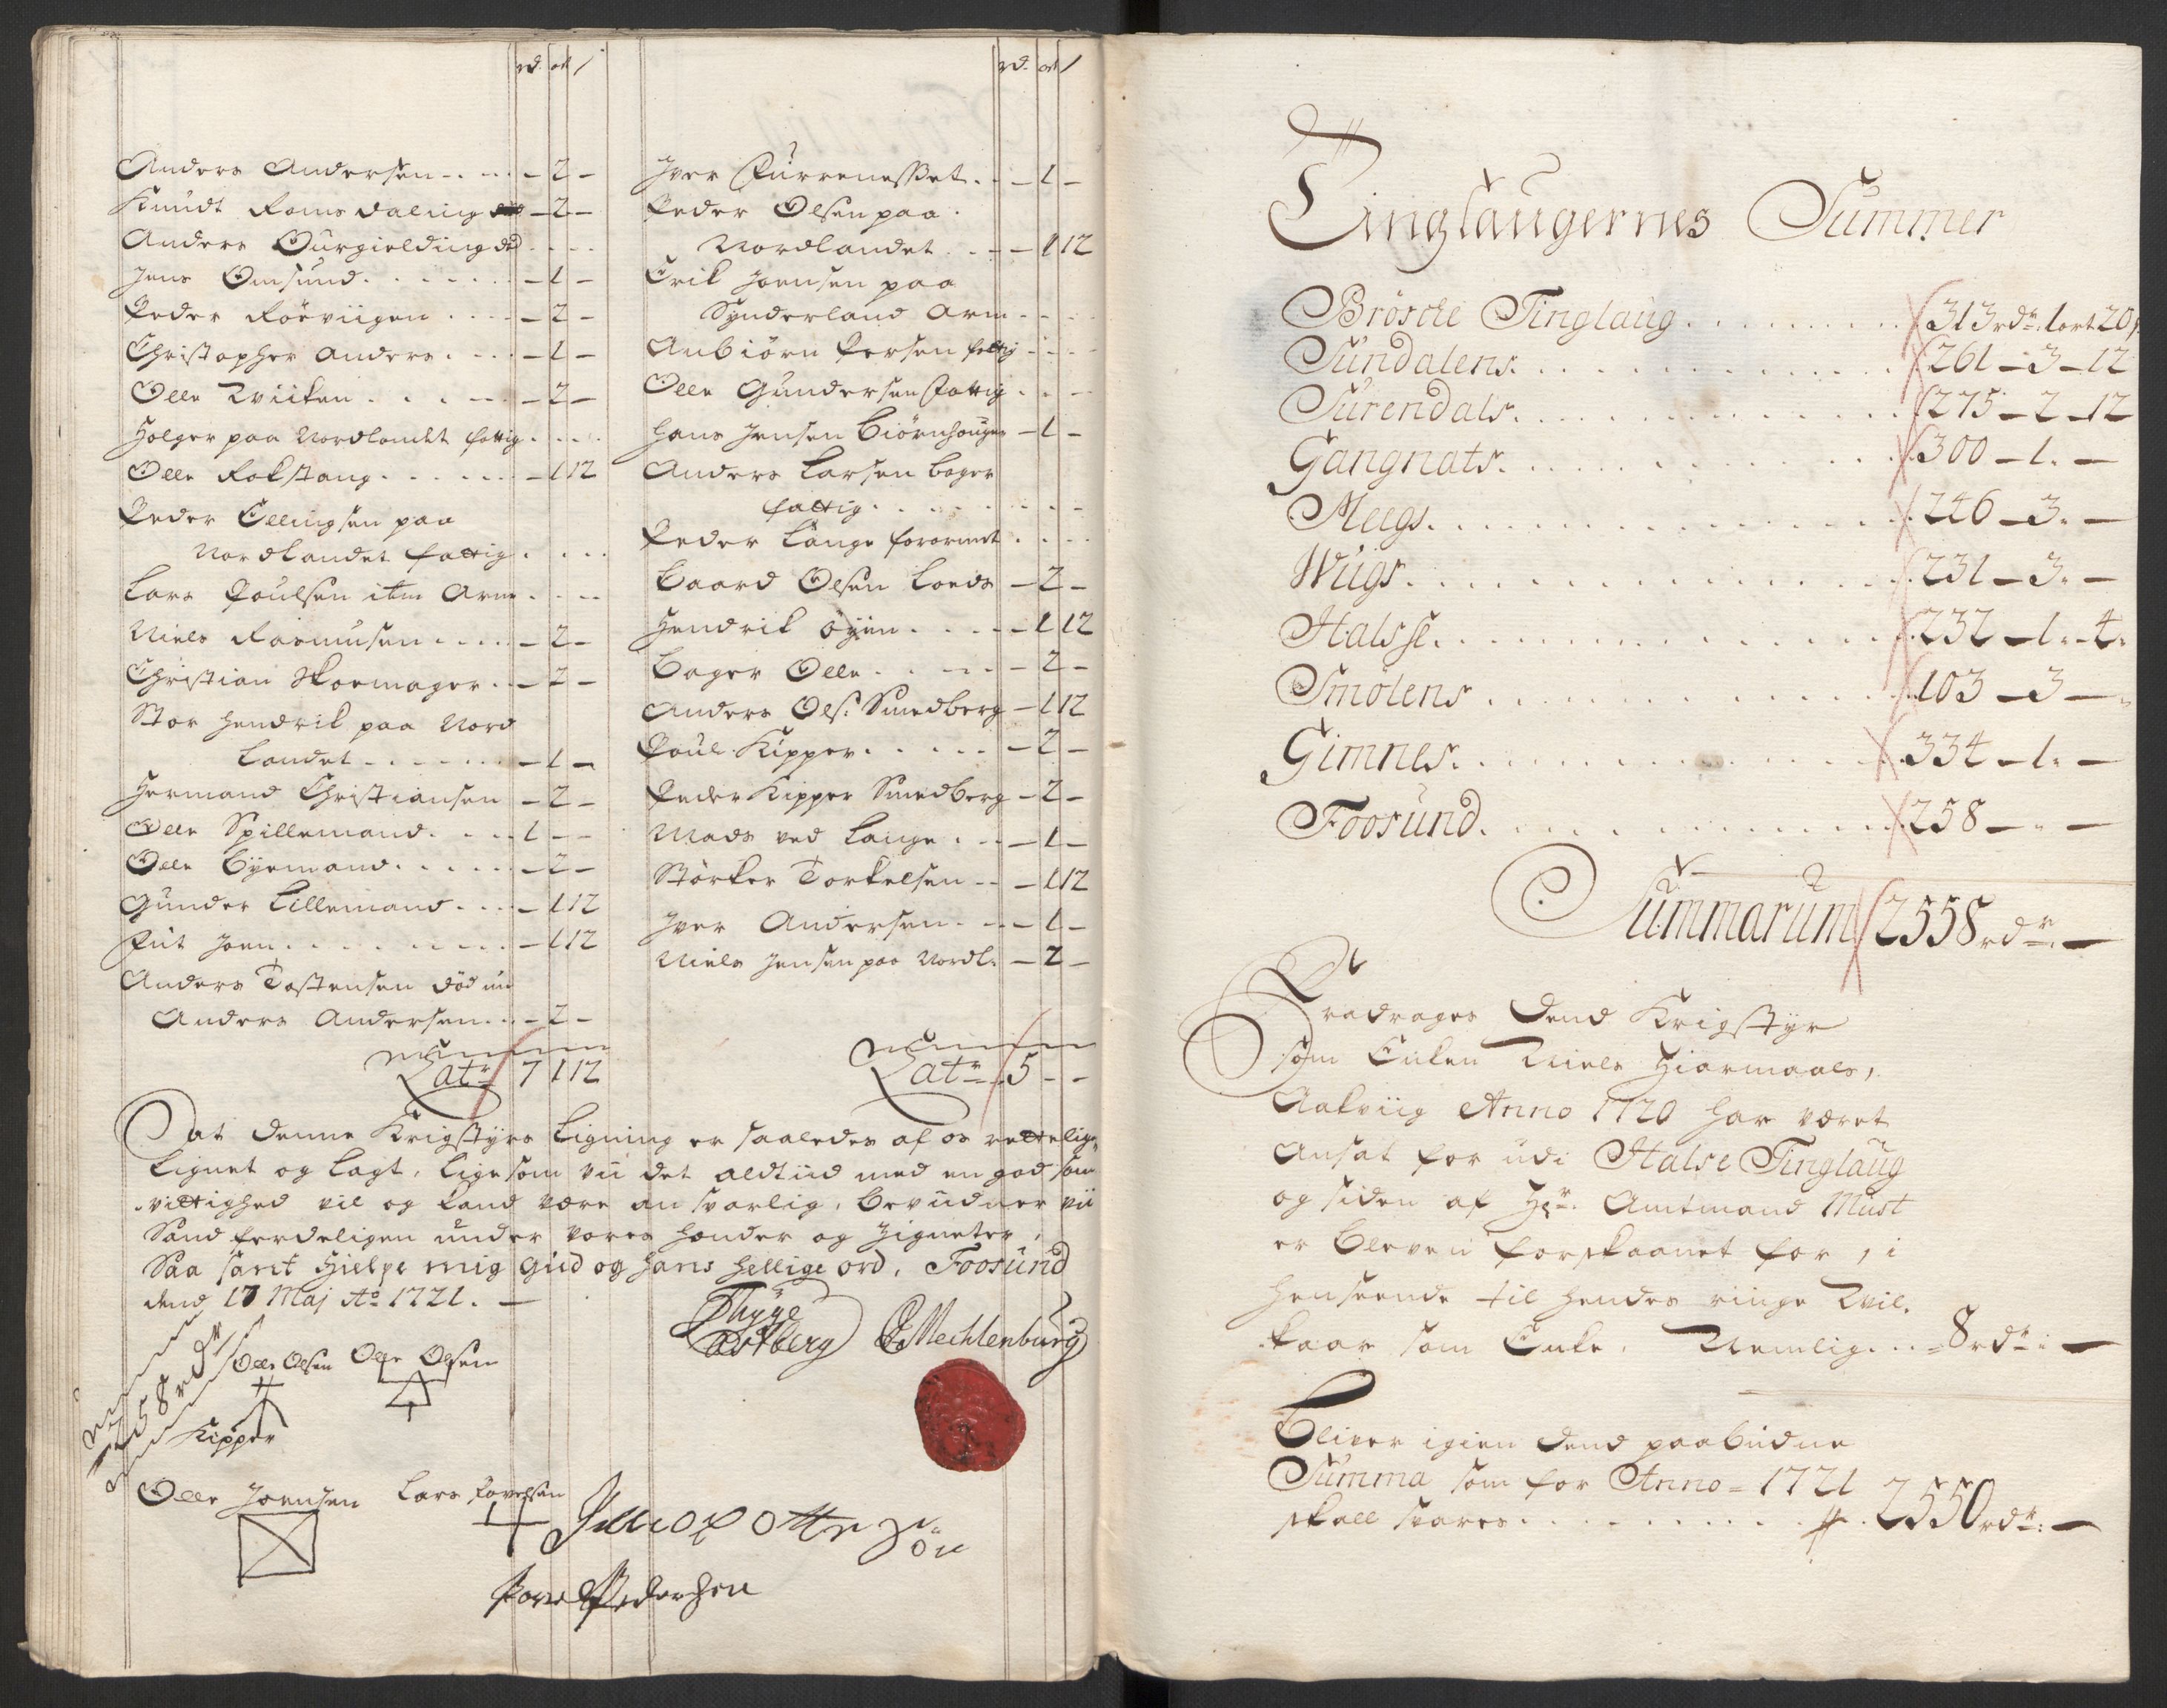 rd. ort /
Anders Andersen - 2 -
Knudt Romsdaling død - 2 -
Anders Ourgielding dd
Jens Omsund - 1 -
Peder Röeviigen - 2 -
Christopher Anders - 1 -
Olle Qviiken - 2 -
Holger paa Nordlandet fattig
Olle Rokstang - 1 12
Peder Ellingsen paa
Nordlandet fattig
Lars Poulsen itm Arm
Niels Rasmusen - 2 -
Christian Skoemager - 2 -
Stor Hendrik paa Nord
Landet - 1 -
Hermand Christiansen - 2 -
Olle Spillemand 1 - -
Olle Byemand - 2 -
Gunder Lillemand - 1 12
Put Joen - 1 12
Anders Tostensen död nu
Anders Andersen - 2 -
Latr 7 1 12
rd. ort /
Iver Furrenesset - 1 -
Peder Olsen paa
Nordlandet - 1 12
Erik Joensen paa
Synderland Arm
Anbiörn Persen fattig
Olle Gundersen Fattig
Hans Jensen Biörnhougen - 1 -
Anders Larsen Bager
fattig
Peder Lange forarmet
Baard Olsen Loeds - 2 -
Hendrik öyen - 1 12
Bager Olle - 2 -
Anders Ols: Smedberg - 1 12
Poul Kipper - 2 -
Peder Kipper Smedberg - 2 -
Mads ved Lange - 1 -
Störker Torkelsen - 1 12
Iver Andersen - 1 -
Niels Jensen paa Nordl: - 2 -
Latr 5 - -
At denne Krigstyrs Ligning er saaledes af os rettelig
Lignet og Lagt, ligesom vii det aldtiid med en god sam
vittighed vil og kand være ansvarlig, bevidner vii
Sandferdeligen under vores Hænder og Zigneter,
Saa sant Hielpe mig Gud og Hans Hellige ord. Foosund
dend 17 Maj Ao 1721. -
Thyge
Astberg
CMechlenburg
258 rdr
Olle Olsen Olle Olsen
Kipper
Olle Joensen Lars Povelsen
Povel Pedersen
Tinglaugernes Summer
Brösche Tinglaug 313 rdr: 1 ort 20 /
Sundalens 261 - 3 - 12
Surendals 275 - 2 - 12
Gangnats 300 - 1. -
Meegs 246 - 3. -
Wugs 231 - 3. -
Halsse 232 - 1. - 4.
Smölens 103 - 3 -
Gimnes 334 - 1. -
Foosund 258 - -
Summarum 2558 rdr: -
Fradrages dend Krigstyr
som Enken Niels Hiarmaals,
Aakviig Anno 1720 har været
Ansat for udi Halse Tinglaug
og siden af Hr. Amtmand Must
er bleven forskaanet for, i
henseende til hendes ringe Vil.
kaar som Enke, Nemlig 8 rdr: -
Bliver igien dend paabudne
Summa som for Anno = 1721
skall svares 2550 rdr: -